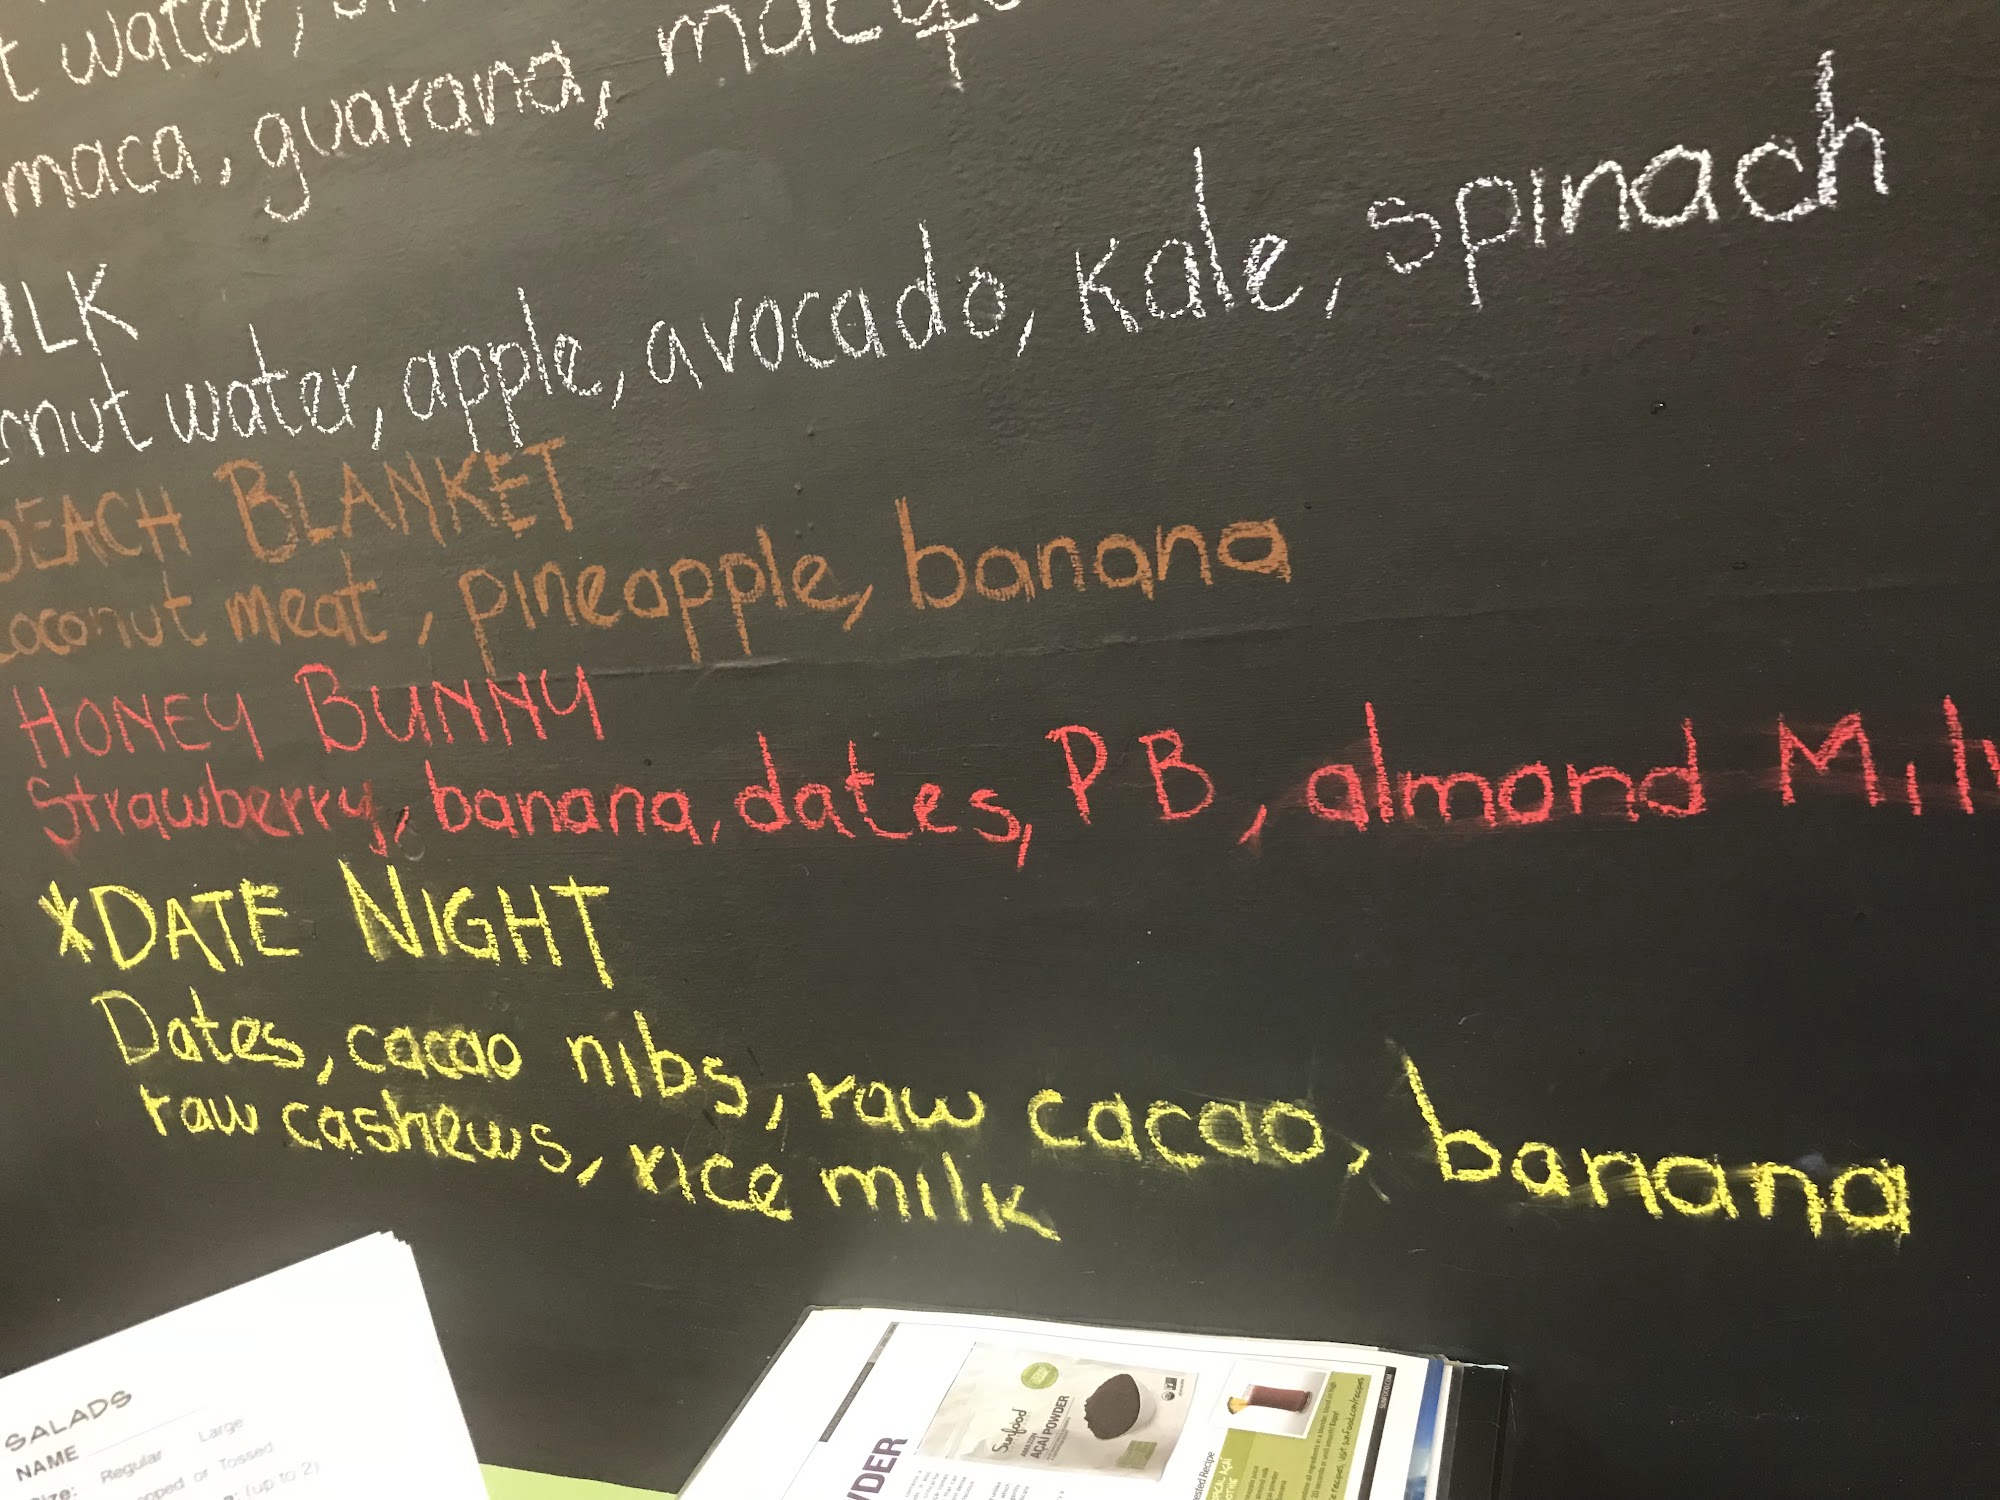 t water,
maca, guarana,
nut water, apple, avocado, kale, spinach
BEACH BLANKET
Coconut meat, pineapple, banana
HONEY BUNNY
Strawberry, banana, dates, PB, almond Milk
*DATE NIGHT
Dates, cacao nibs, raw cacao, banana
raw cashews, rice milk
SALADS
NAME
Size: Regular Large
or Tossed
(up to 2)
WDER
Sunfood
AMAZON
AÇAÍ POWDER
SUNFOOD.COM